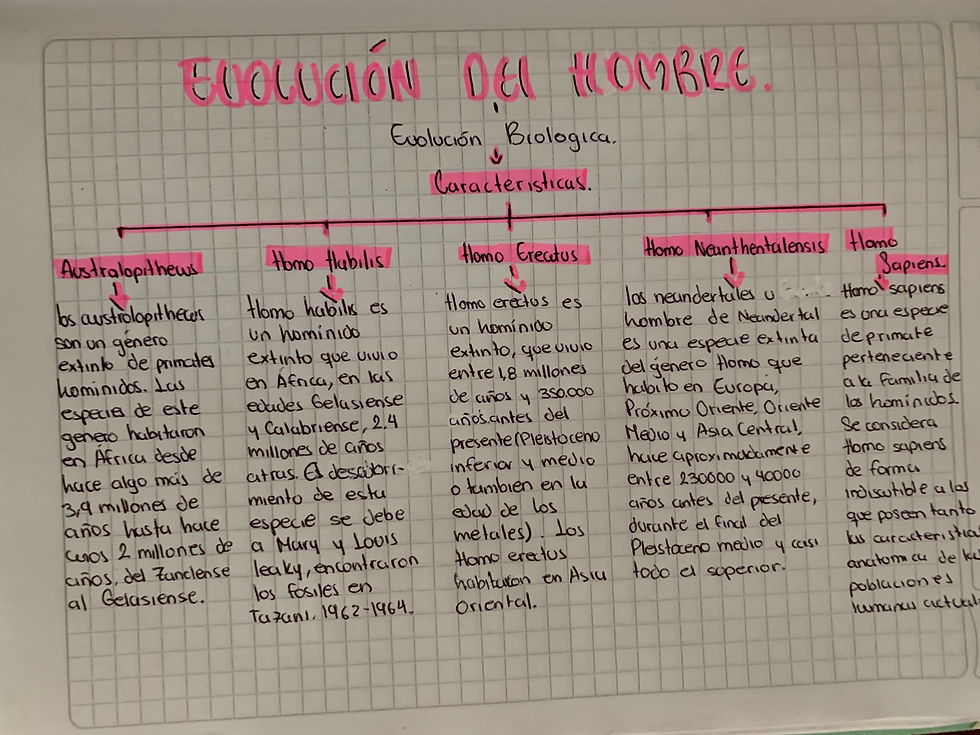 EVOLUCIÓN DEL HOMBRE.
Evolución Biologica.
Caracteristicas.
Australopithecus
los austrolopithecus
son un género
extinto de primates
hominidos. Las
especies de este
genero habitaron
en África desde
hace algo más de
3,9 millones de
años hasta hace
unos 2 millones de
años, del Zancliense
al Gelasiense.
Homo Habilis
Homo habilis es
un homínido
extinto que vivio
en África, en las
edades Gelasiense
y Calabriense, 2.4
millones de años
atras. El descubri-
miento de esta
especie se debe
a Mary y Louis
leaky, encontraron
los fosiles en
Tazani, 1962-1964.
Homo Erectus
Homo erectus es
un homínido
extinto, que vivio
entre 1,8 millones
de años y 350.000
años.antes del
presente (Pleistoceno
inferior y medio
o tambien en la
edad de los
metales). Los
Homo erectus
habitaron en Asia
Oriental.
Homo Neanthentalensis
los neandertales u
hombre de Neandertal
es una especie extinta
del género Homo que
habito en Europa,
Próximo Oriente, Oriente
Medio y Asia Central,
hace aproximadamente
entre 230000 y 40000
años antes del presente,
durante el final del
Pleistoceno medio y casi
todo el superior.
Homo
Sapiens
Homo sapiens
es una especie
de primate
perteneciente
a la familia de
los homínidos.
Se considera
Homo sapiens
de forma
indiscutible a los
que poseen tanto
las caracteristica
anatomica de las
poblaciones
humanas